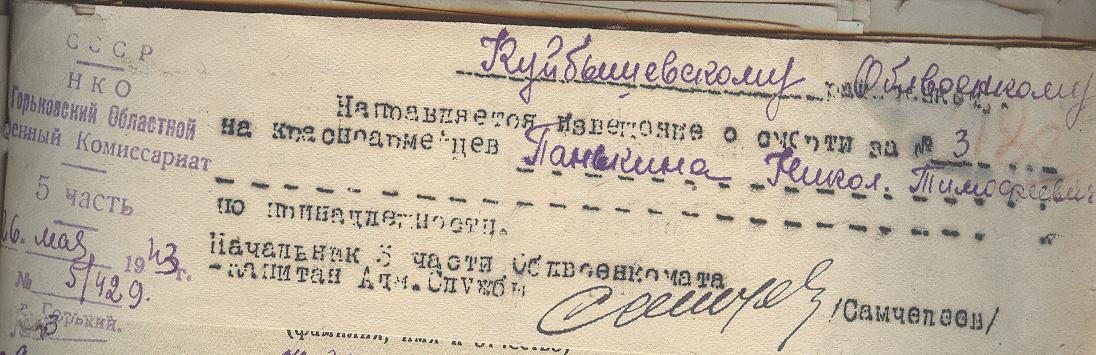 СССР
НКО
Горьковский Областной
енный Комиссариат
5 часть
26. мая 1943 г.
№ 5/429.
г. Горький.
Куйбышевскому Облвоенкому
Направляется извещение о смерти за № 3
на красноармейцев Панькина Никол. Тимофеевич
по принадлежности.
Начальник 5 части Облвоенкомата
-капитан Адм.Службы
/Самчелеев/
(фамилия, имя и отчество)